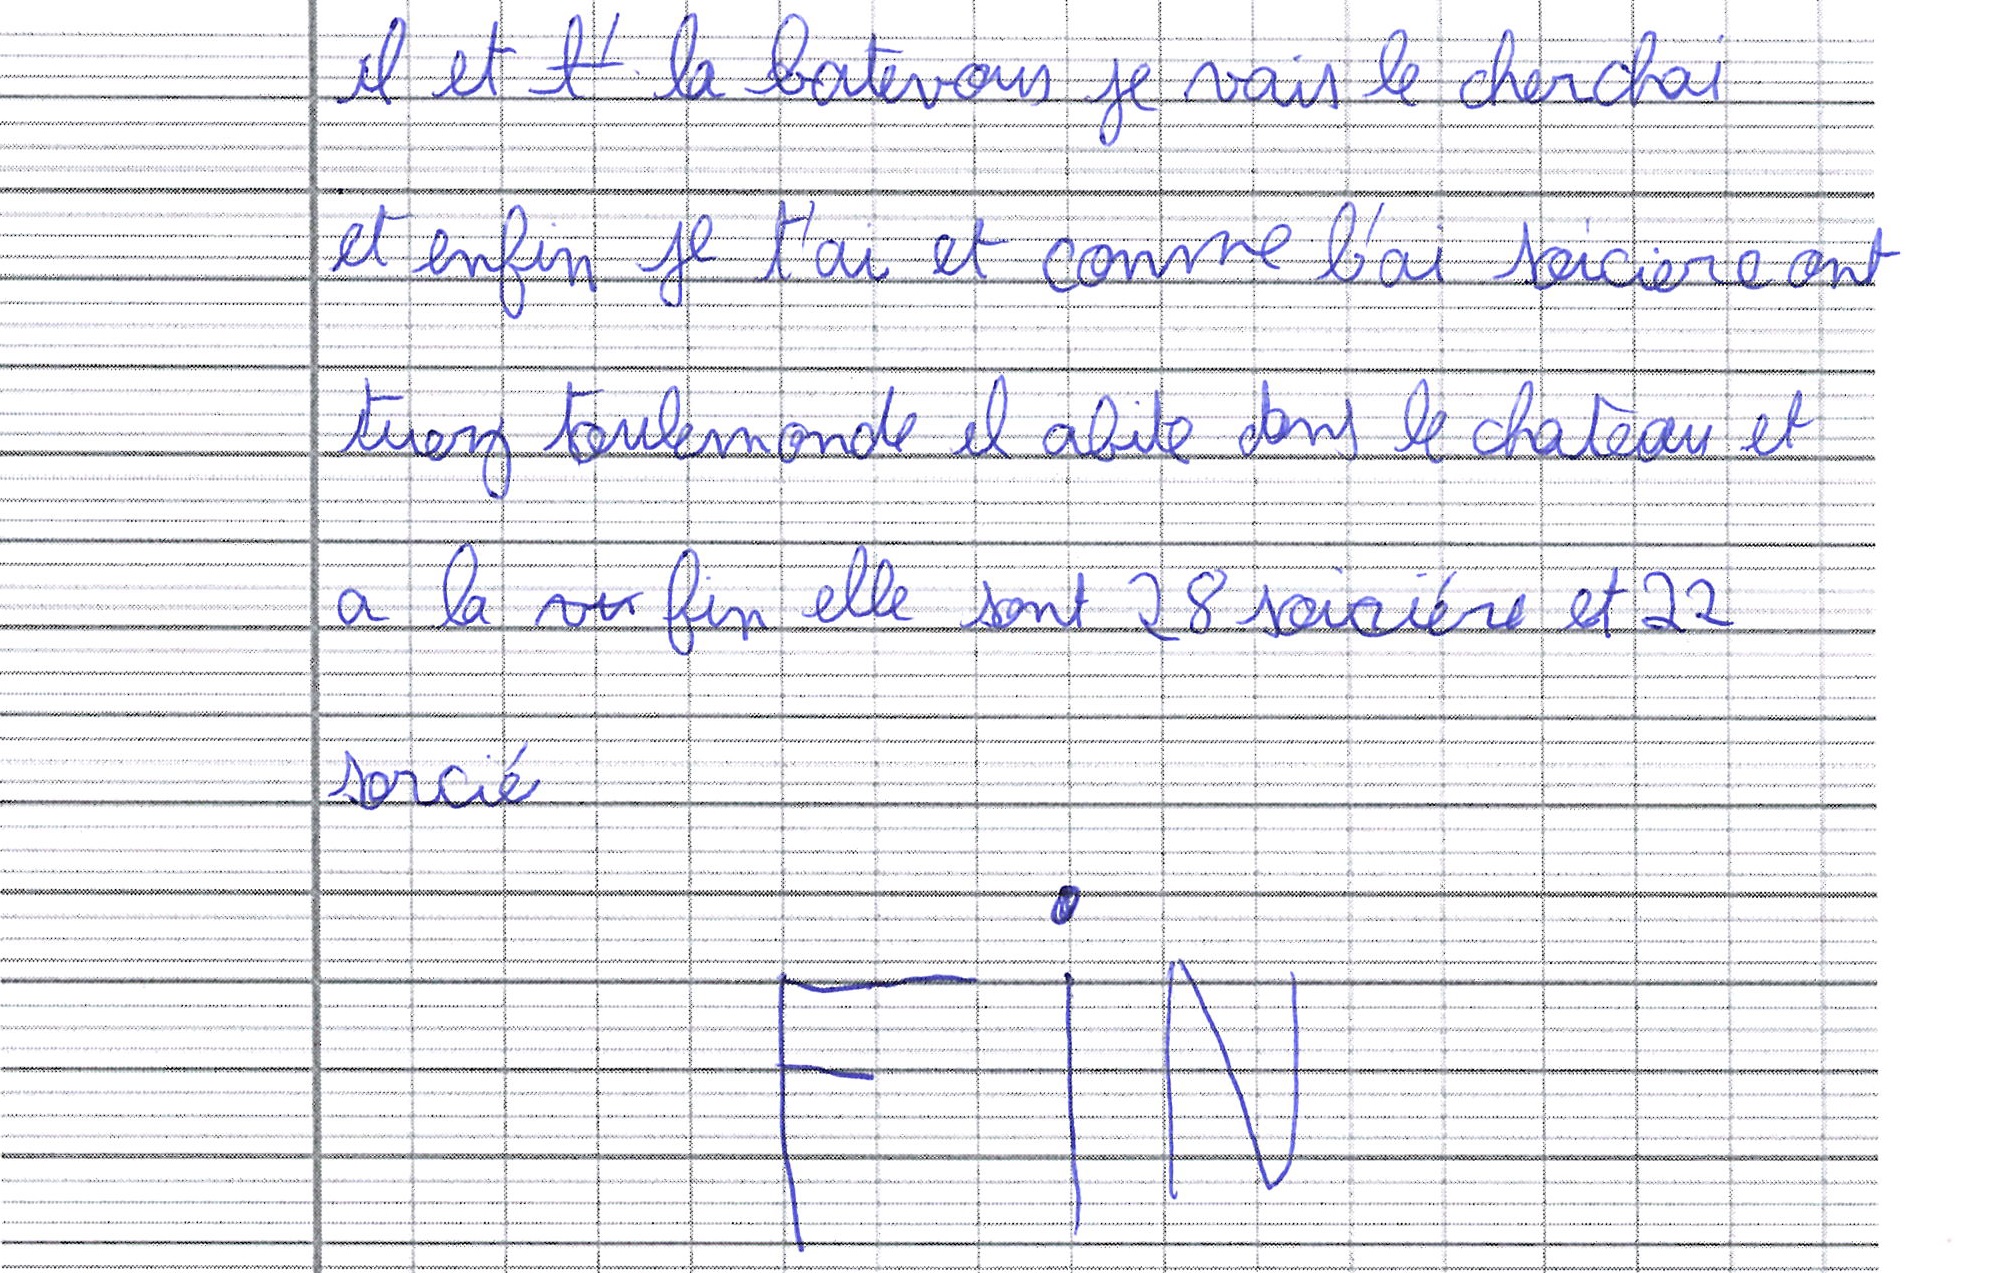 il et t' la batevous je vais le cherchai
et enfin je t'ai et comme l'ai soiciere ont
tuez toulemonde il abite dans le chateau et
a la fin elle sont 28 soiciére et 22
sorcié
FiN